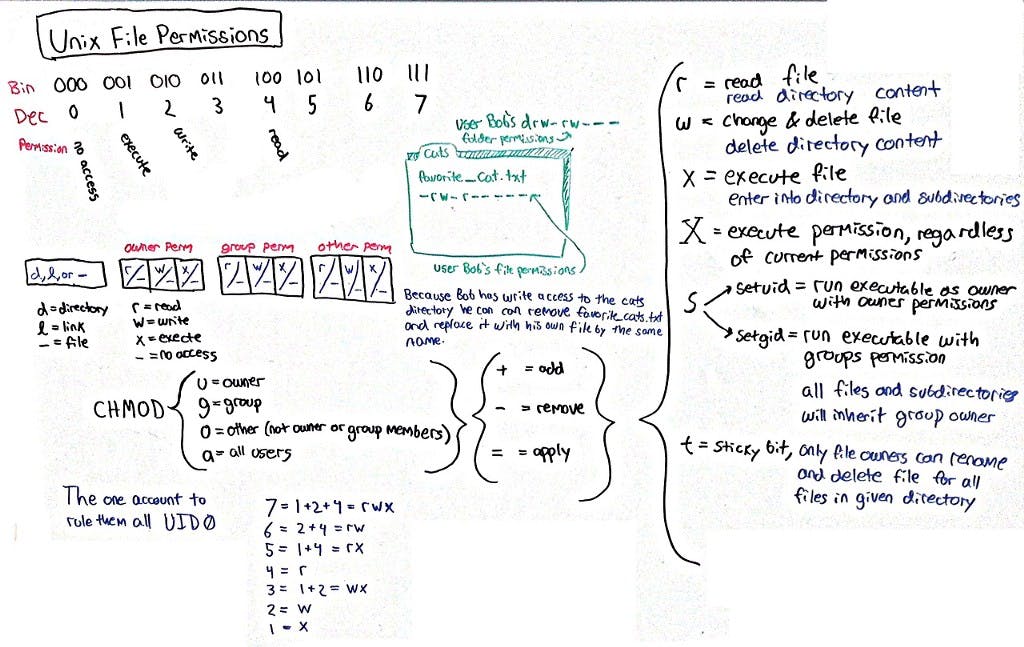 Unix File Permissions
Bin 000 001 010 011 100 101 110 111
Dec 0 1 2 3 4 5 6 7
Permission no access execute write read
user Bob's drw-rw----
folder permissions
Cats
favorite_cat.txt
-rw-r-----
user Bob's file permissions
owner perm group perm other perm
d,l,or - r/- w/- x/- r/- w/- x/- r/- w/- x/-
d = directory
l = link
- = file
r = read
w = write
x = execte
- = no access
Because Bob has write access to the cats
directory he can can remove favorite_cats.txt
and replace it with his own file by the same
name.
CHMOD
u = owner
g = group
o = other (not owner or group members)
a = all users
+ = add
- = remove
= = apply
r = read file
read directory content
w = change & delete file
delete directory content
x = execute file
enter into directory and subdirectories
X = execute permission, regardless
of current permissions
s
setuid = run executable as owner
with owner permissions
setgid = run executable with
groups permission
all files and subdirectories
will inherit group owner
t = sticky bit, only file owners can rename
and delete file for all
files in given directory
The one account to
rule them all UID0
7 = 1+2+4 = rwx
6 = 2+4 = rw
5 = 1+4 = rx
4 = r
3 = 1+2 = wx
2 = w
1 - x